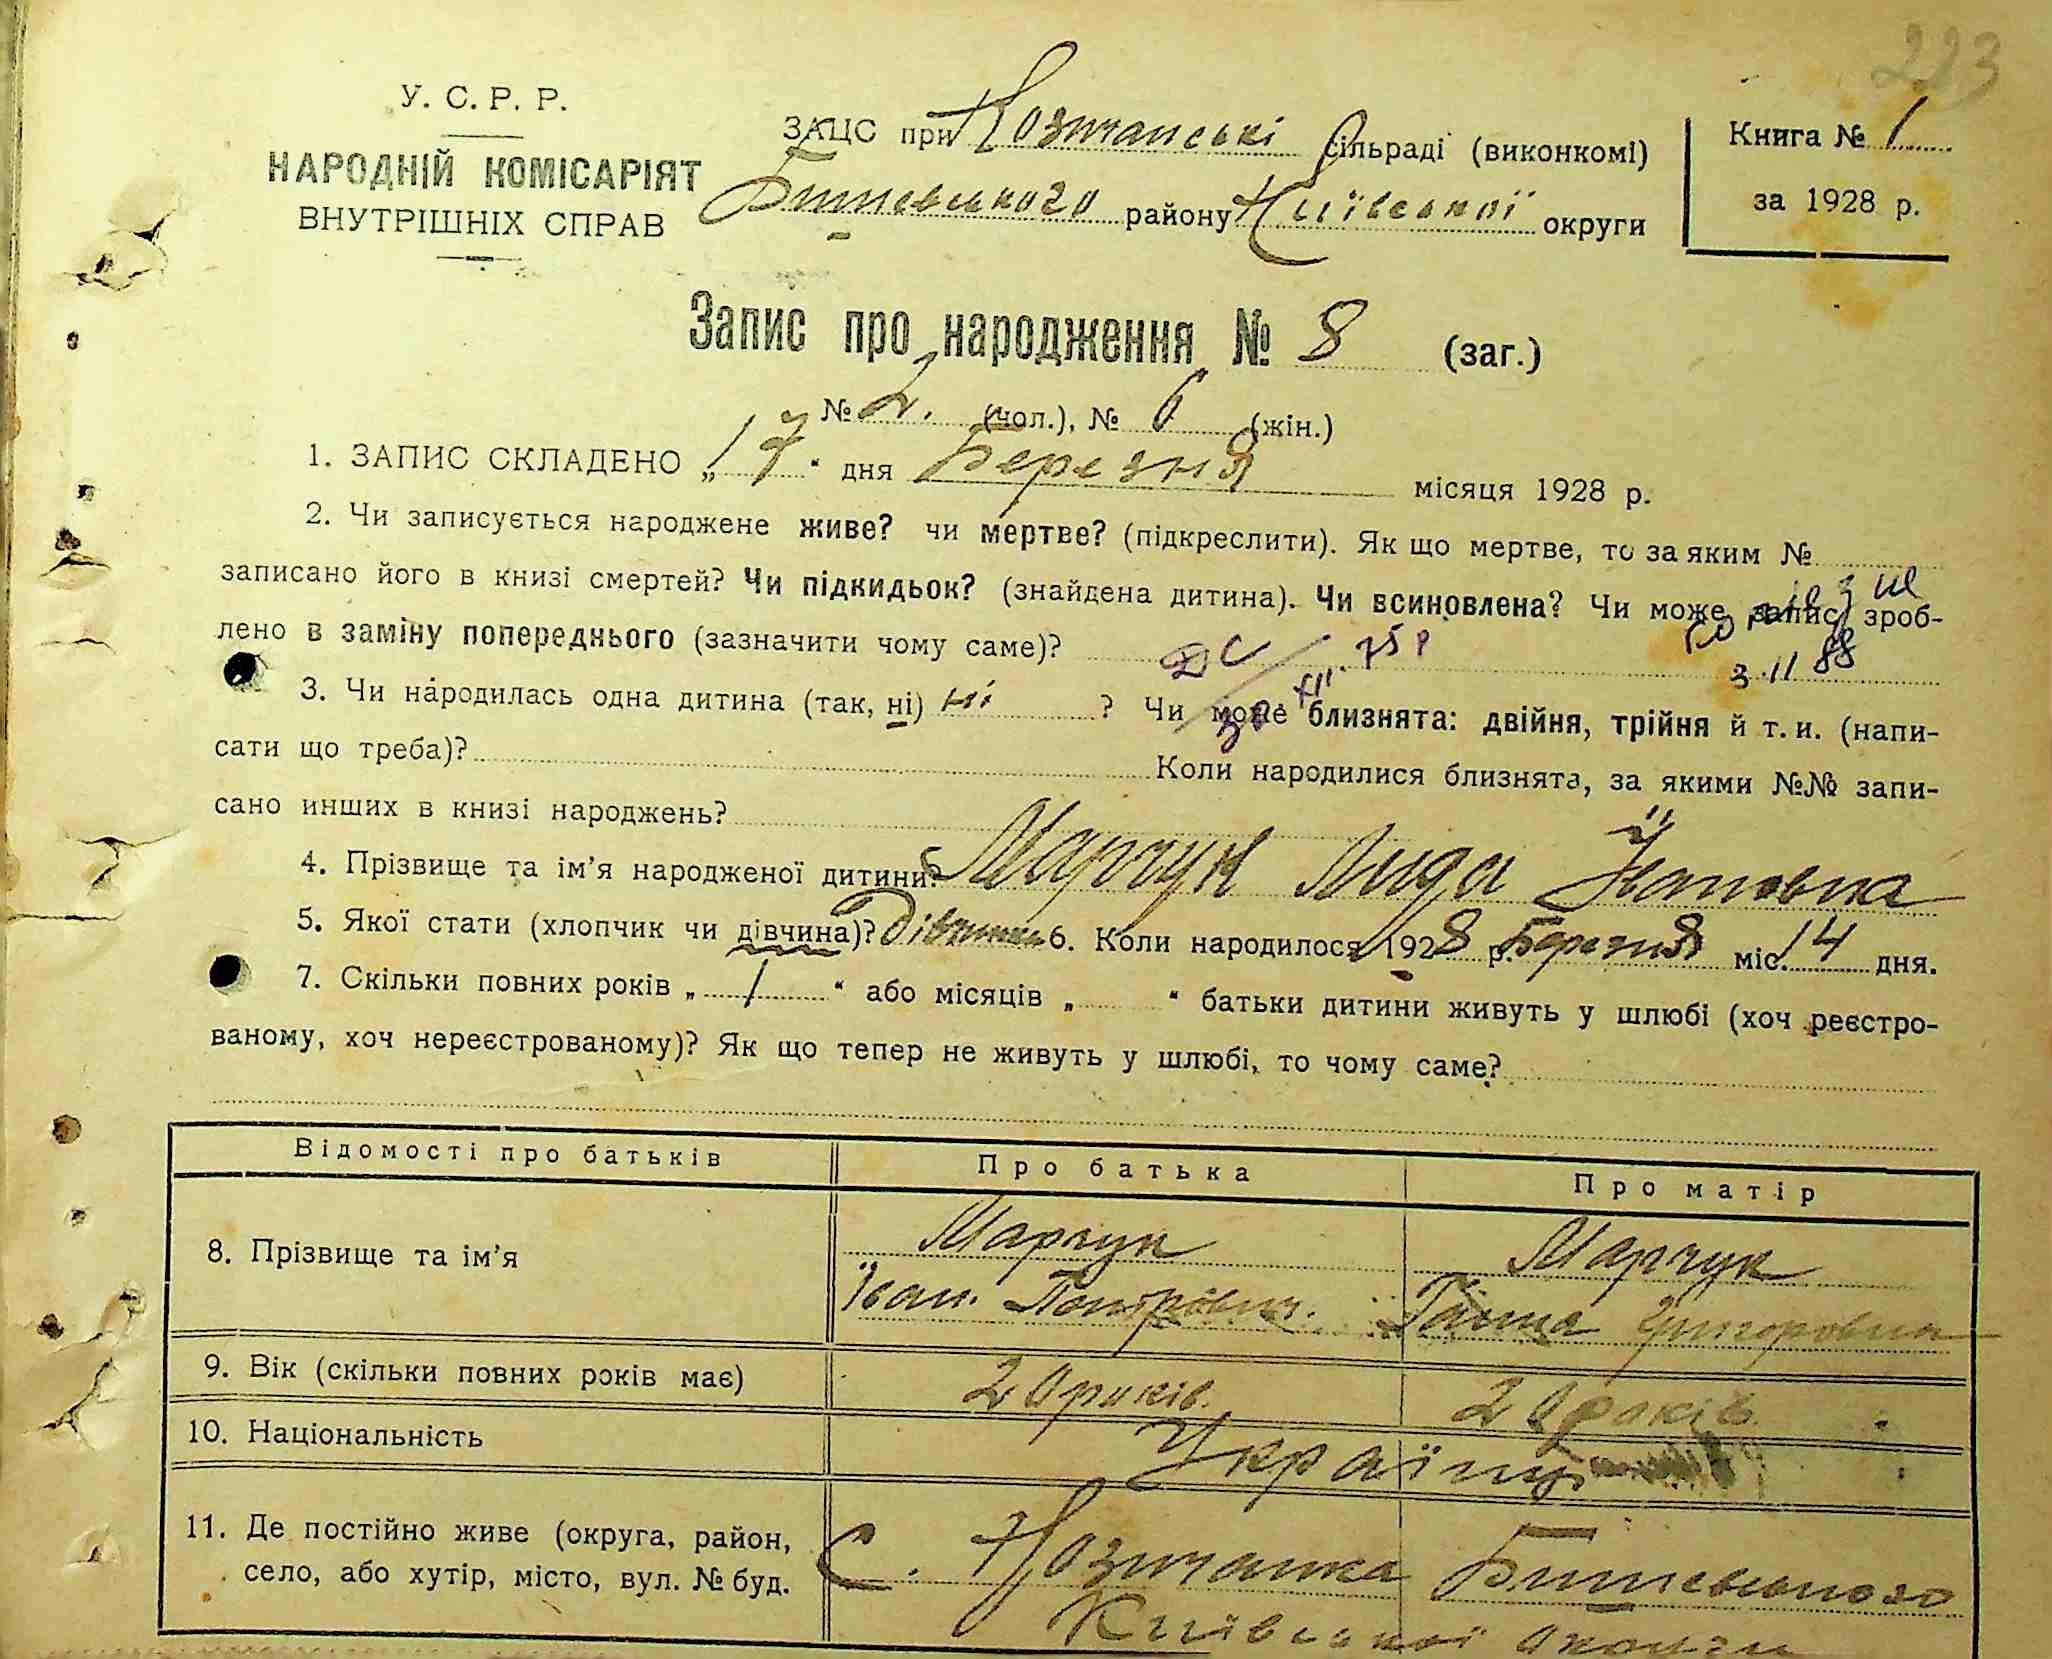 223
У. С. Р. Р.
НАРОДНІЙ КОМІСАРІЯТ
ВНУТРІШНІХ СПРАВ
ЗАЦС при Козичанські сільраді (виконкомі)
Бишевського району Київської округи
Книга № 1
за 1928 р.
Запис про народження № 8 (заг.)
№ 2. (чол.), № 6 (жін.)
1. ЗАПИС СКЛАДЕНО „17“ дня Березня місяця 1928 р.
2. Чи записується народжене живе? чи мертве? (підкреслити). Як що мертве, то за яким №
записано його в книзі смертей? Чи підкидьок? (знайдена дитина). Чи всиновлена? Чи може, запис зроб-
лено в заміну попереднього (зазначити чому саме)?
3.11 88
3. Чи народилась одна дитина (так, ні) ні ? Чи може близнята: двійня, трійня й т. и. (напи-
сати що треба)? Коли народилися близнята, за якими №№ запи-
сано инших в книзі народжень?
4. Прізвище та ім'я народженої дитини? Марчук Лида Йвановна
5. Якої стати (хлопчик чи дівчина)? Дівчина 6. Коли народилося 1928 р. Березня міс. 14 дня.
7. Скільки повних років „ 1 “ або місяців „ “ батьки дитини живуть у шлюбі (хоч реєстро-
ваному, хоч нереєстрованому)? Як що тепер не живуть у шлюбі, то чому саме?
Відомості про батьків Про батька Про матір
8. Прізвище та ім'я Марчук Марчук
Іван. Ганна Григоровна
9. Вік (скільки повних років має) 20 років. 20 років
10. Національність Українці
11. Де постійно живе (округа, район,
село, або хутір, місто, вул. № буд.
С. Козичанка Бишевського
Київської округи